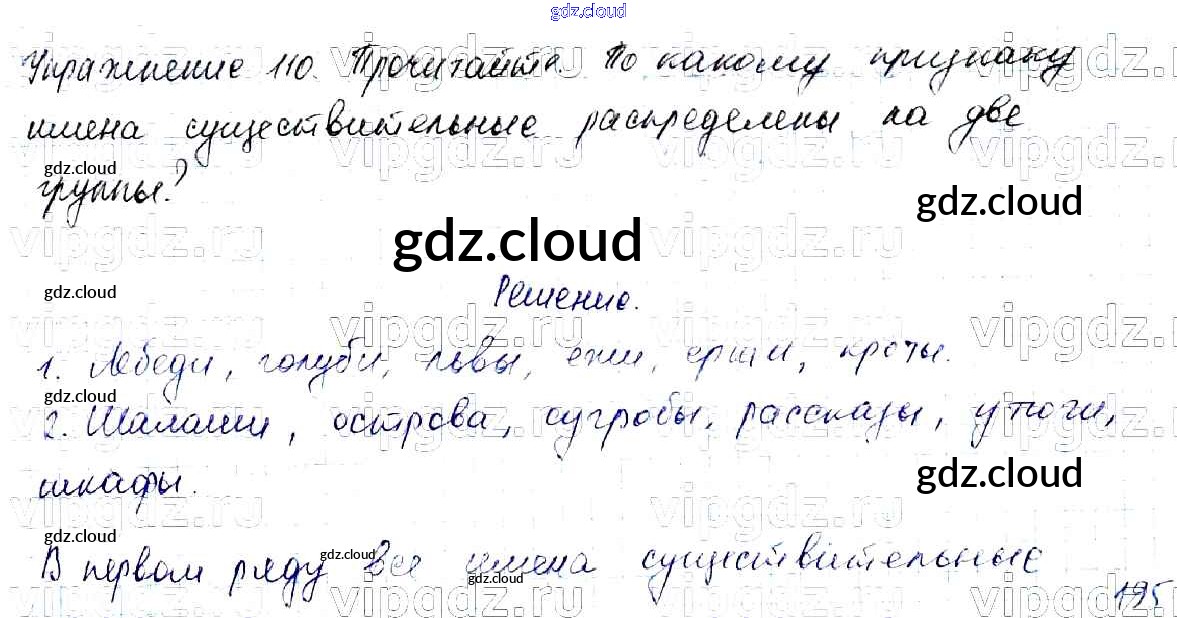 gdz.cloud
Упражнение 110. Прочитайте. По какому признаку
имена существительные распределены на две
gdz.cloud
группы?
gdz.cloud
vipgdz.ru
gdz.cloud
gdz.cloud
Решение.
vipgdz.ru
1. Лебеди, голуби, львы, ежи, ерши, кроты.
gdz.cloud
2. Шалаши, острова, сугробы, рассказы, утюги,
шкафы.
gdz.cloud
vipgdz.ru
gdz.cloud
В первом ряду все имена существительные
gdz.cloud
gdz.cloud
195